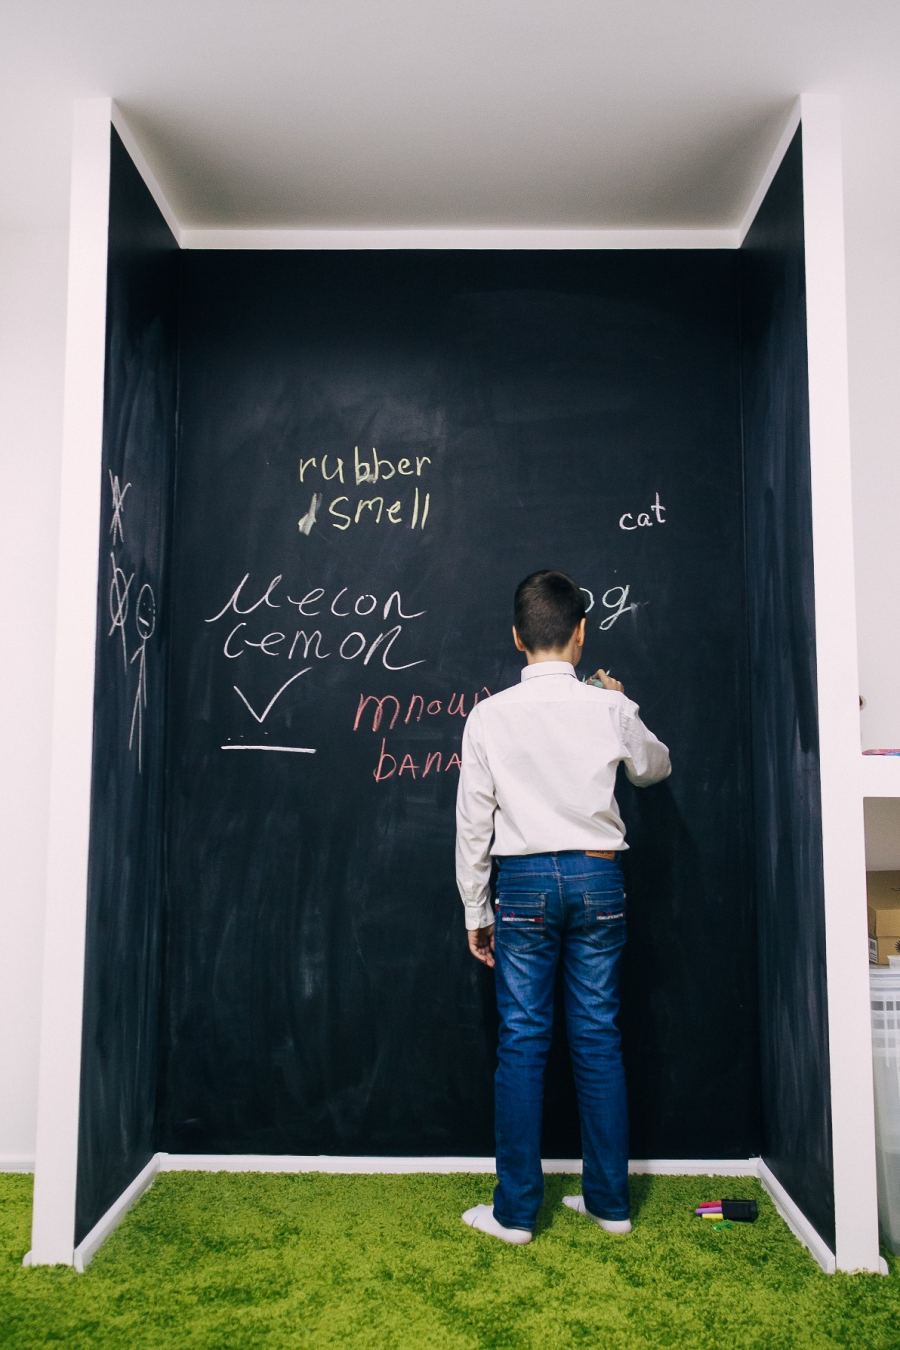 rubber
smell
cat
Mecon
Lemon
og
mnoun
bana